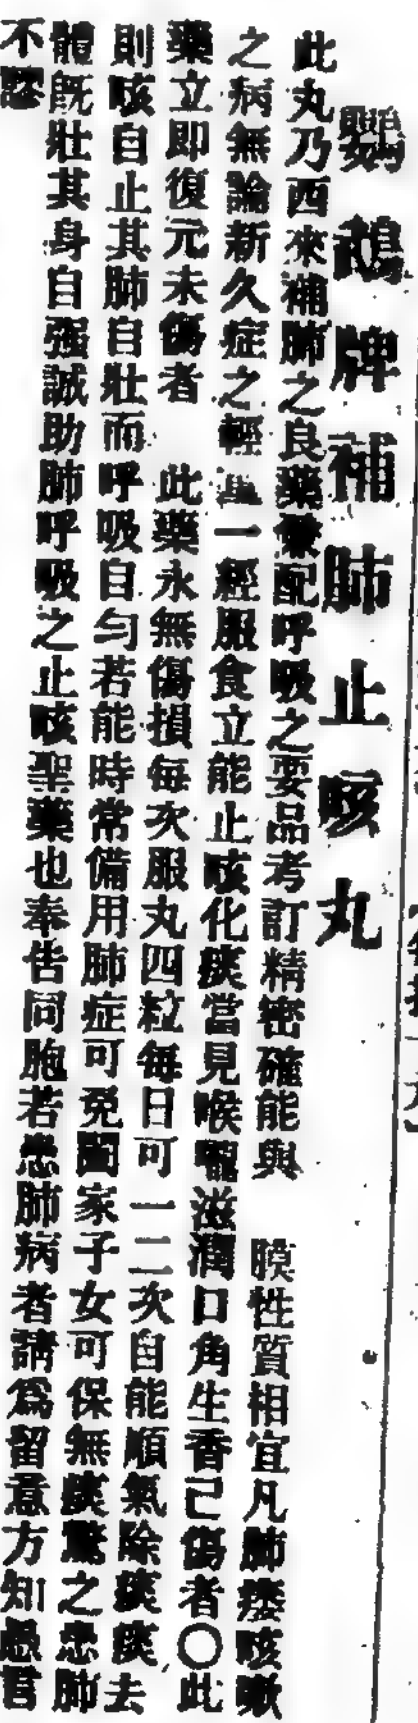 鸚鵡牌補肺止咳丸
此丸乃西來補肺之良藥兼配呼吸之要品考訂精密確能與 膜性質相宜凡肺痿咳嗽
之病無論新久症之輕 一經服食立能止咳化痰當見喉嚨滋潤口角生香已傷者〇此
藥立即復元未傷者 此藥永無傷損每次服丸四粒每日可一二次自能順氣除痰痰去
則咳自止其肺自壯而呼吸自勻若能時常備用肺症可免閤家子女可保無痰驚之患肺
體既壯其身自强誠助肺呼吸之止咳聖藥也奉告同胞若患肺病者請爲留意方知愚言
不謬